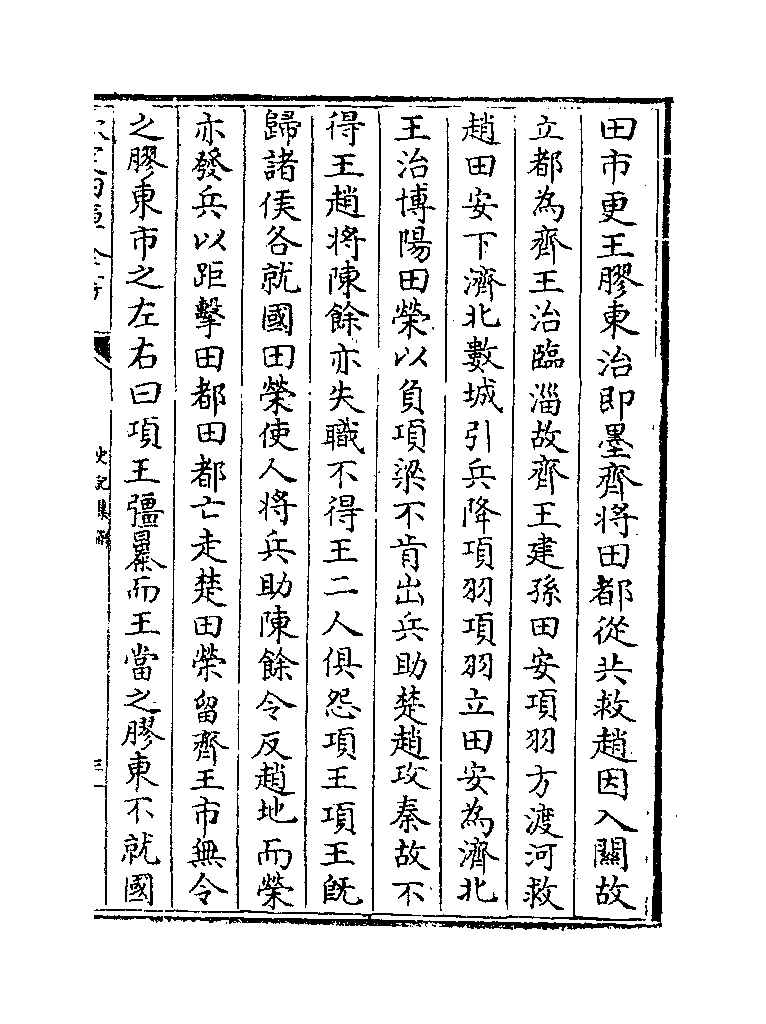 田市更王膠東治即墨齊將田都從共救趙因入關故
立都為齊王治臨淄故齊王建孫田安項羽方渡河救
趙田安下濟北數城引兵降項羽項羽立田安為濟北
王治博陽田榮以負項梁不肯出兵助楚趙攻秦故不
得王趙將陳餘亦失職不得王二人俱怨項王項王既
歸諸侯各就國田榮使人將兵助陳餘令反趙地而榮
亦發兵以距擊田都田都亡走楚田榮留齊王市無令
之膠東市之左右曰項王彊暴而王當之膠東不就國
史記集解